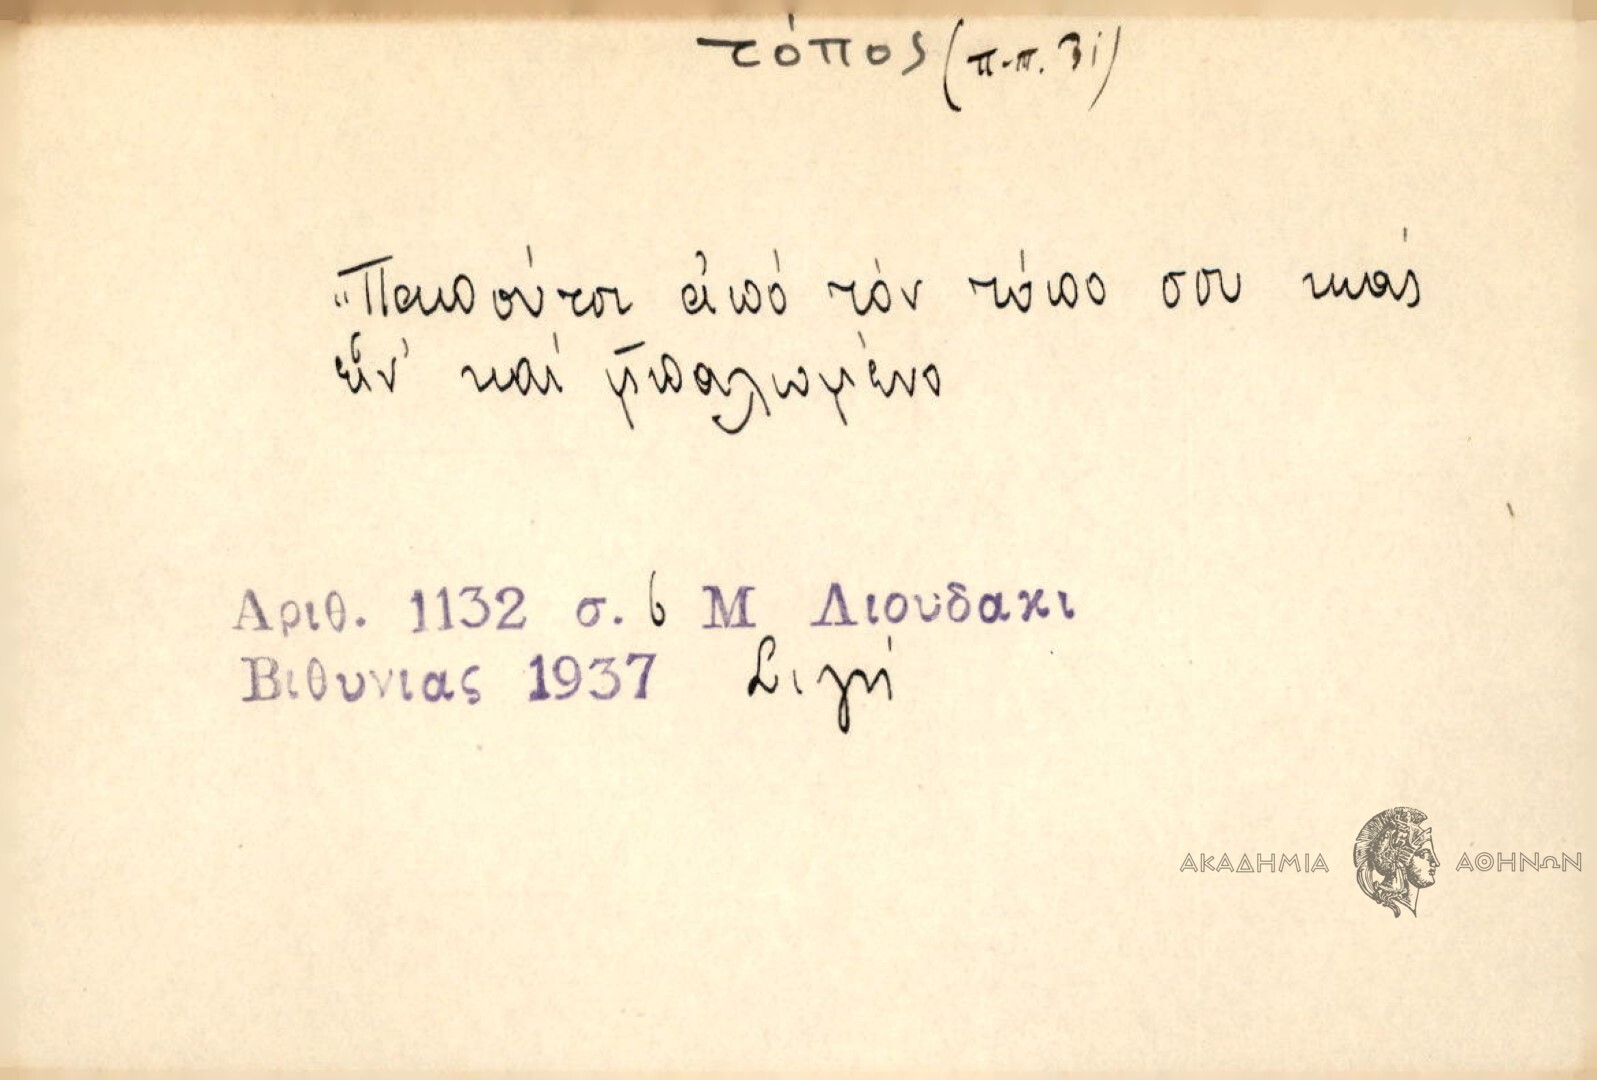 τόπος (π-π. 31)
"Παπούτσι ἀπό τόν τόπο σου κιἄς
εἶν' καί μπαλωμένο
Αριθ. 1132 σ. 6 Μ Λιουδακι
Βιθυνιας 1937 Σιγή
ΑΚΑΔΗΜΙΑ ΑΘΗΝΩΝ